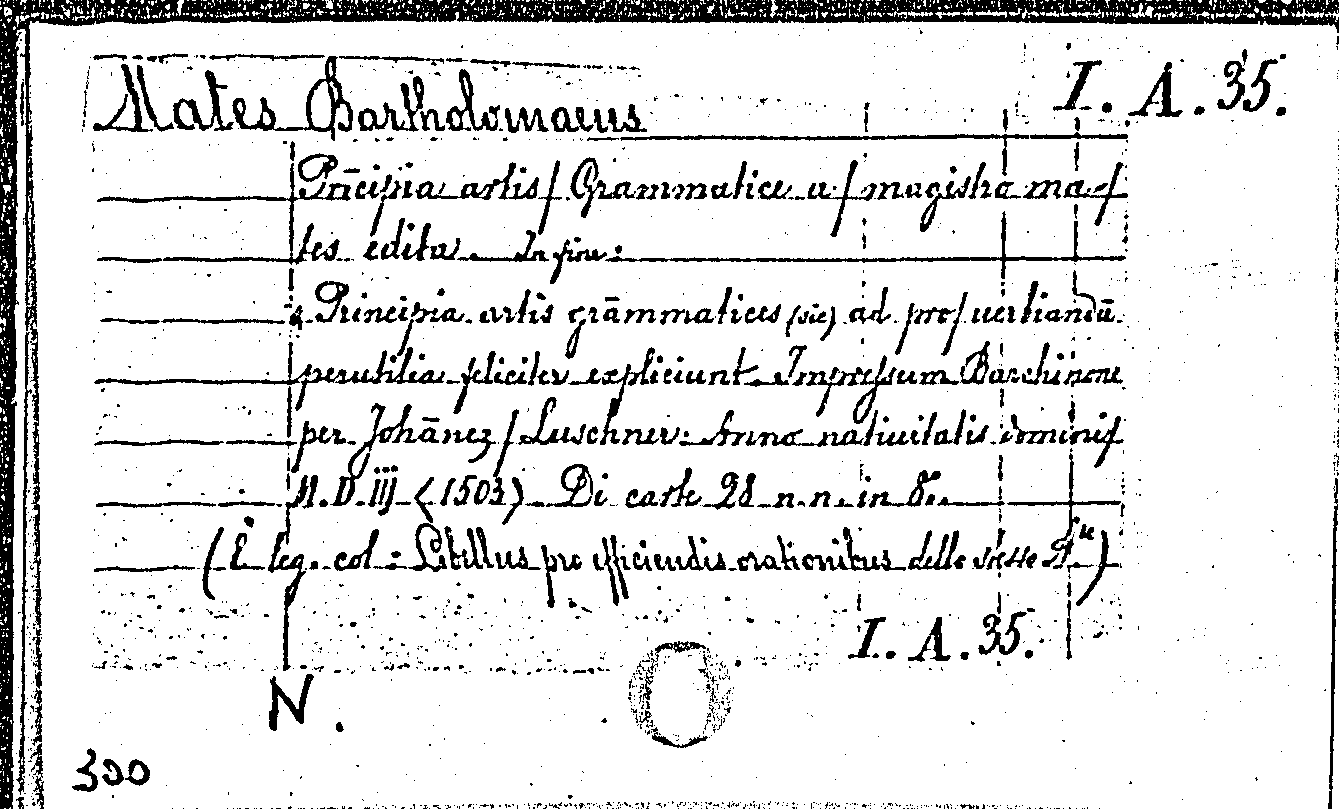 Mates Bartholomaeus I. A. 35.
Prīcipia artis/ Grammatice a/ magistro ma-/
tes edita. In fine:
Principia artis grāmmatices (sic) ad pro/ uerbiandū
perutilia feliciter expliciunt. Impressum Barchinone
per Johānez / Luschner: Anno natiuitatis domini/
M.D.iij (1503) Di carte 28 n.n. in 8°.
(È leg. col: Libellus pro efficiendis orationibus dello stesso A.re)
I. A. 35.
N.
300